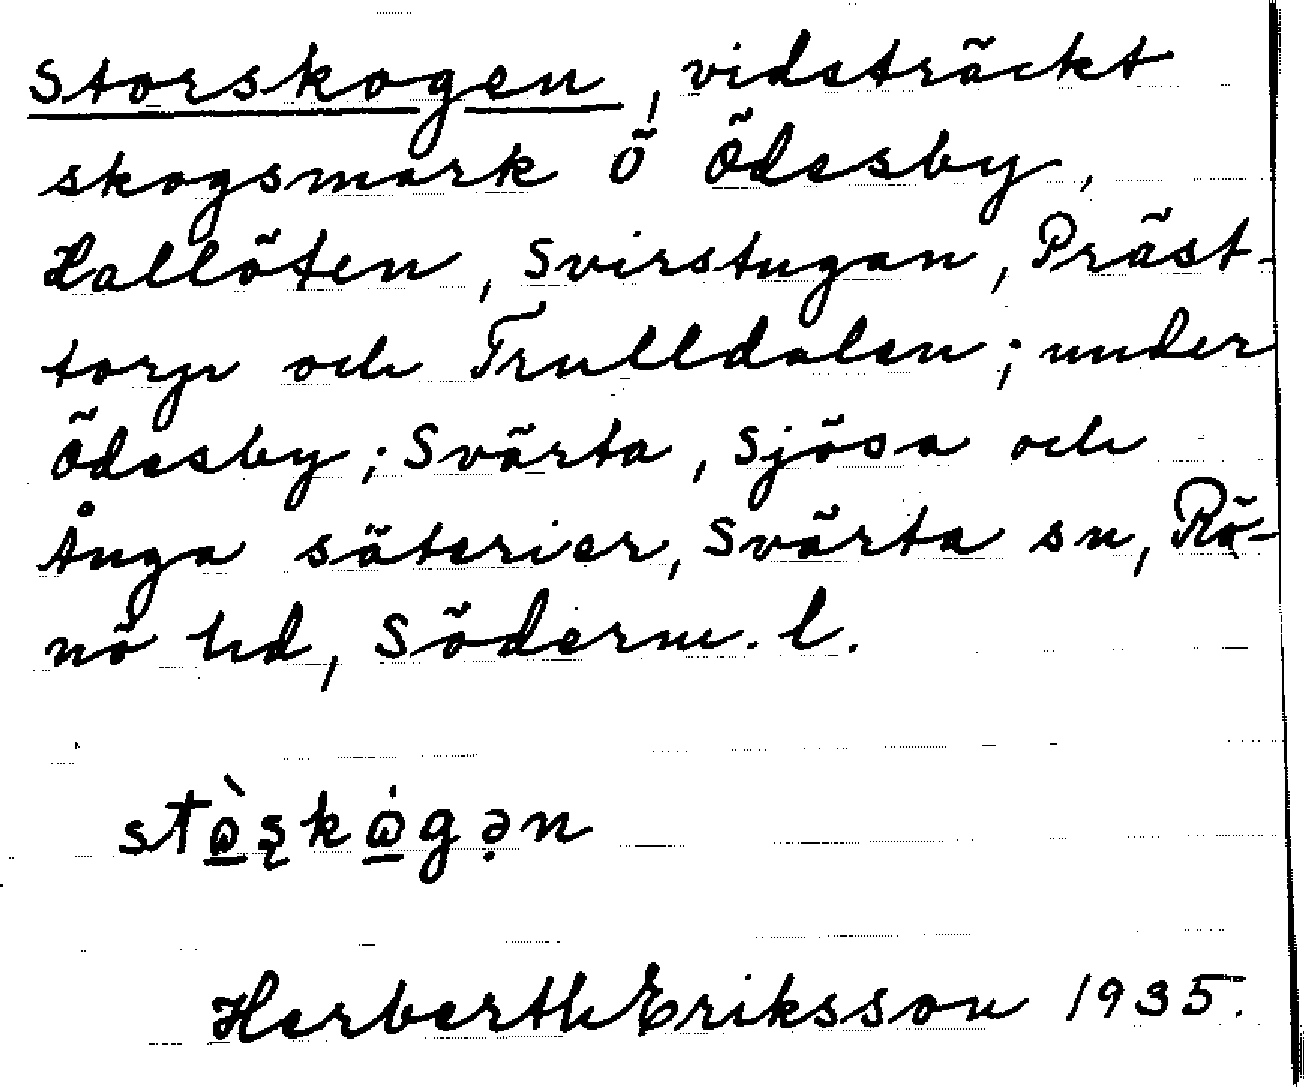 Storskogen, vidsträckt
skogsmark Ö Ödesby,
Hallöten, Svirstugan, Präst-
torp och Trulldalen; under
Ödesby; Svärta, Sjösa och
Ånga säterier, Svärta sn, Rö-
nö hd, Söderm. l.
Herberth Eriksson 1935.